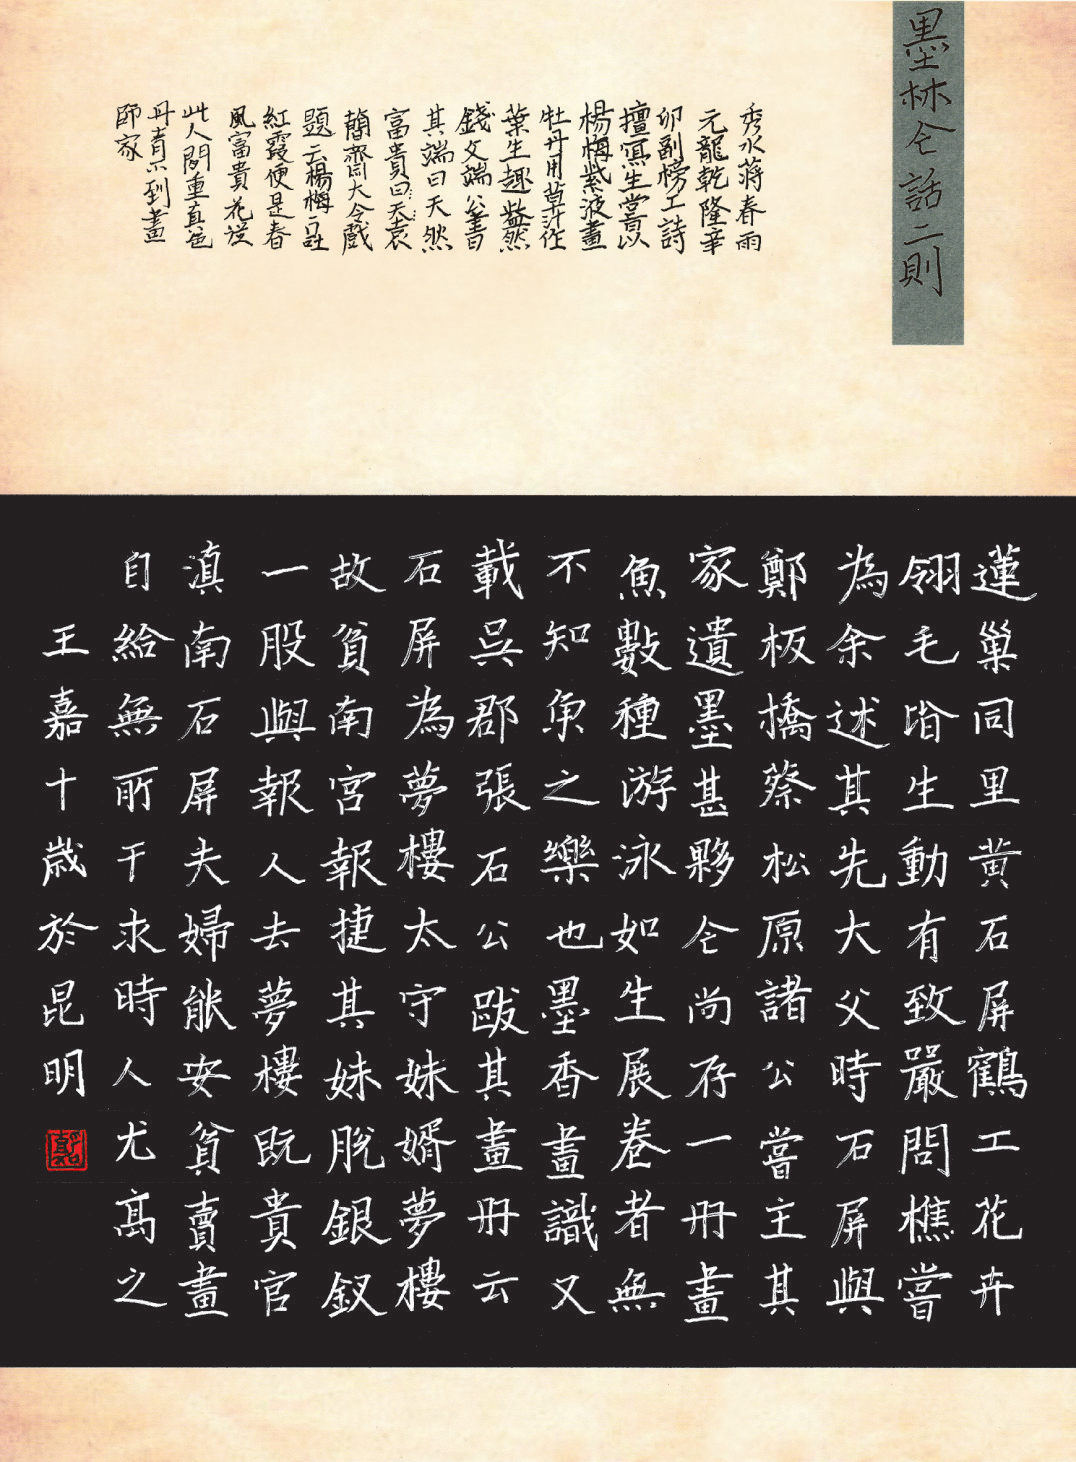 墨林仝話二則
秀水蔣春雨
元龍乾隆辛
卯副榜工詩
擅寫生嘗以
楊梅紫液畫
牡丹用草汁作
葉生趣盎然
錢文端公書
其端曰天然
富貴曰天袁
簡齋大令戲
題云楊梅一吐
紅霞便是春
風富貴花從
此人間重真色
丹青不到畫
師家
蓮巢同里黃石屏鶴工花卉
翎毛皆生動有致嚴問樵嘗
為余述其先大父時石屏與
鄭板橋蔡松原諸公嘗主其
家遺墨甚夥仝尚存一冊畫
魚數種游泳如生展卷者無
不知魚之樂也墨香畫識又
載吳郡張石公跋其畫冊云
石屏為夢樓太守妹婿夢樓
故貧南宮報捷其妹脫銀釵
一股與報人去夢樓既貴官
滇南石屏夫婦能安貧賣畫
自給無所干求時人尤高之
王嘉十歲於昆明